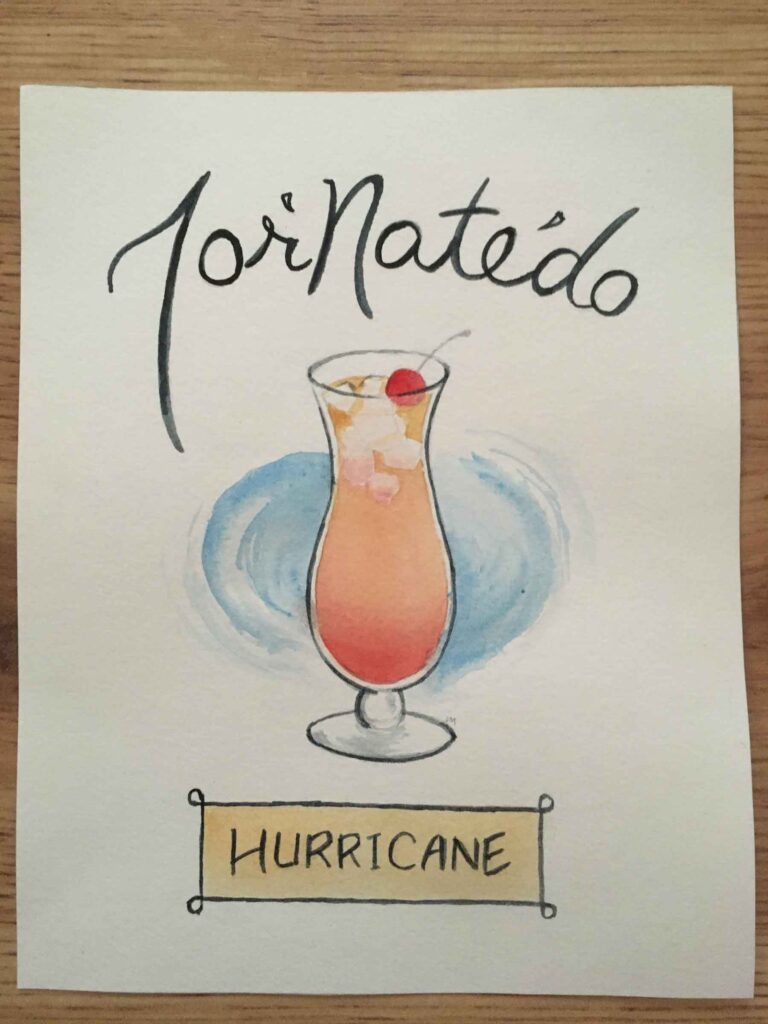 ToriNatédo
HURRICANE